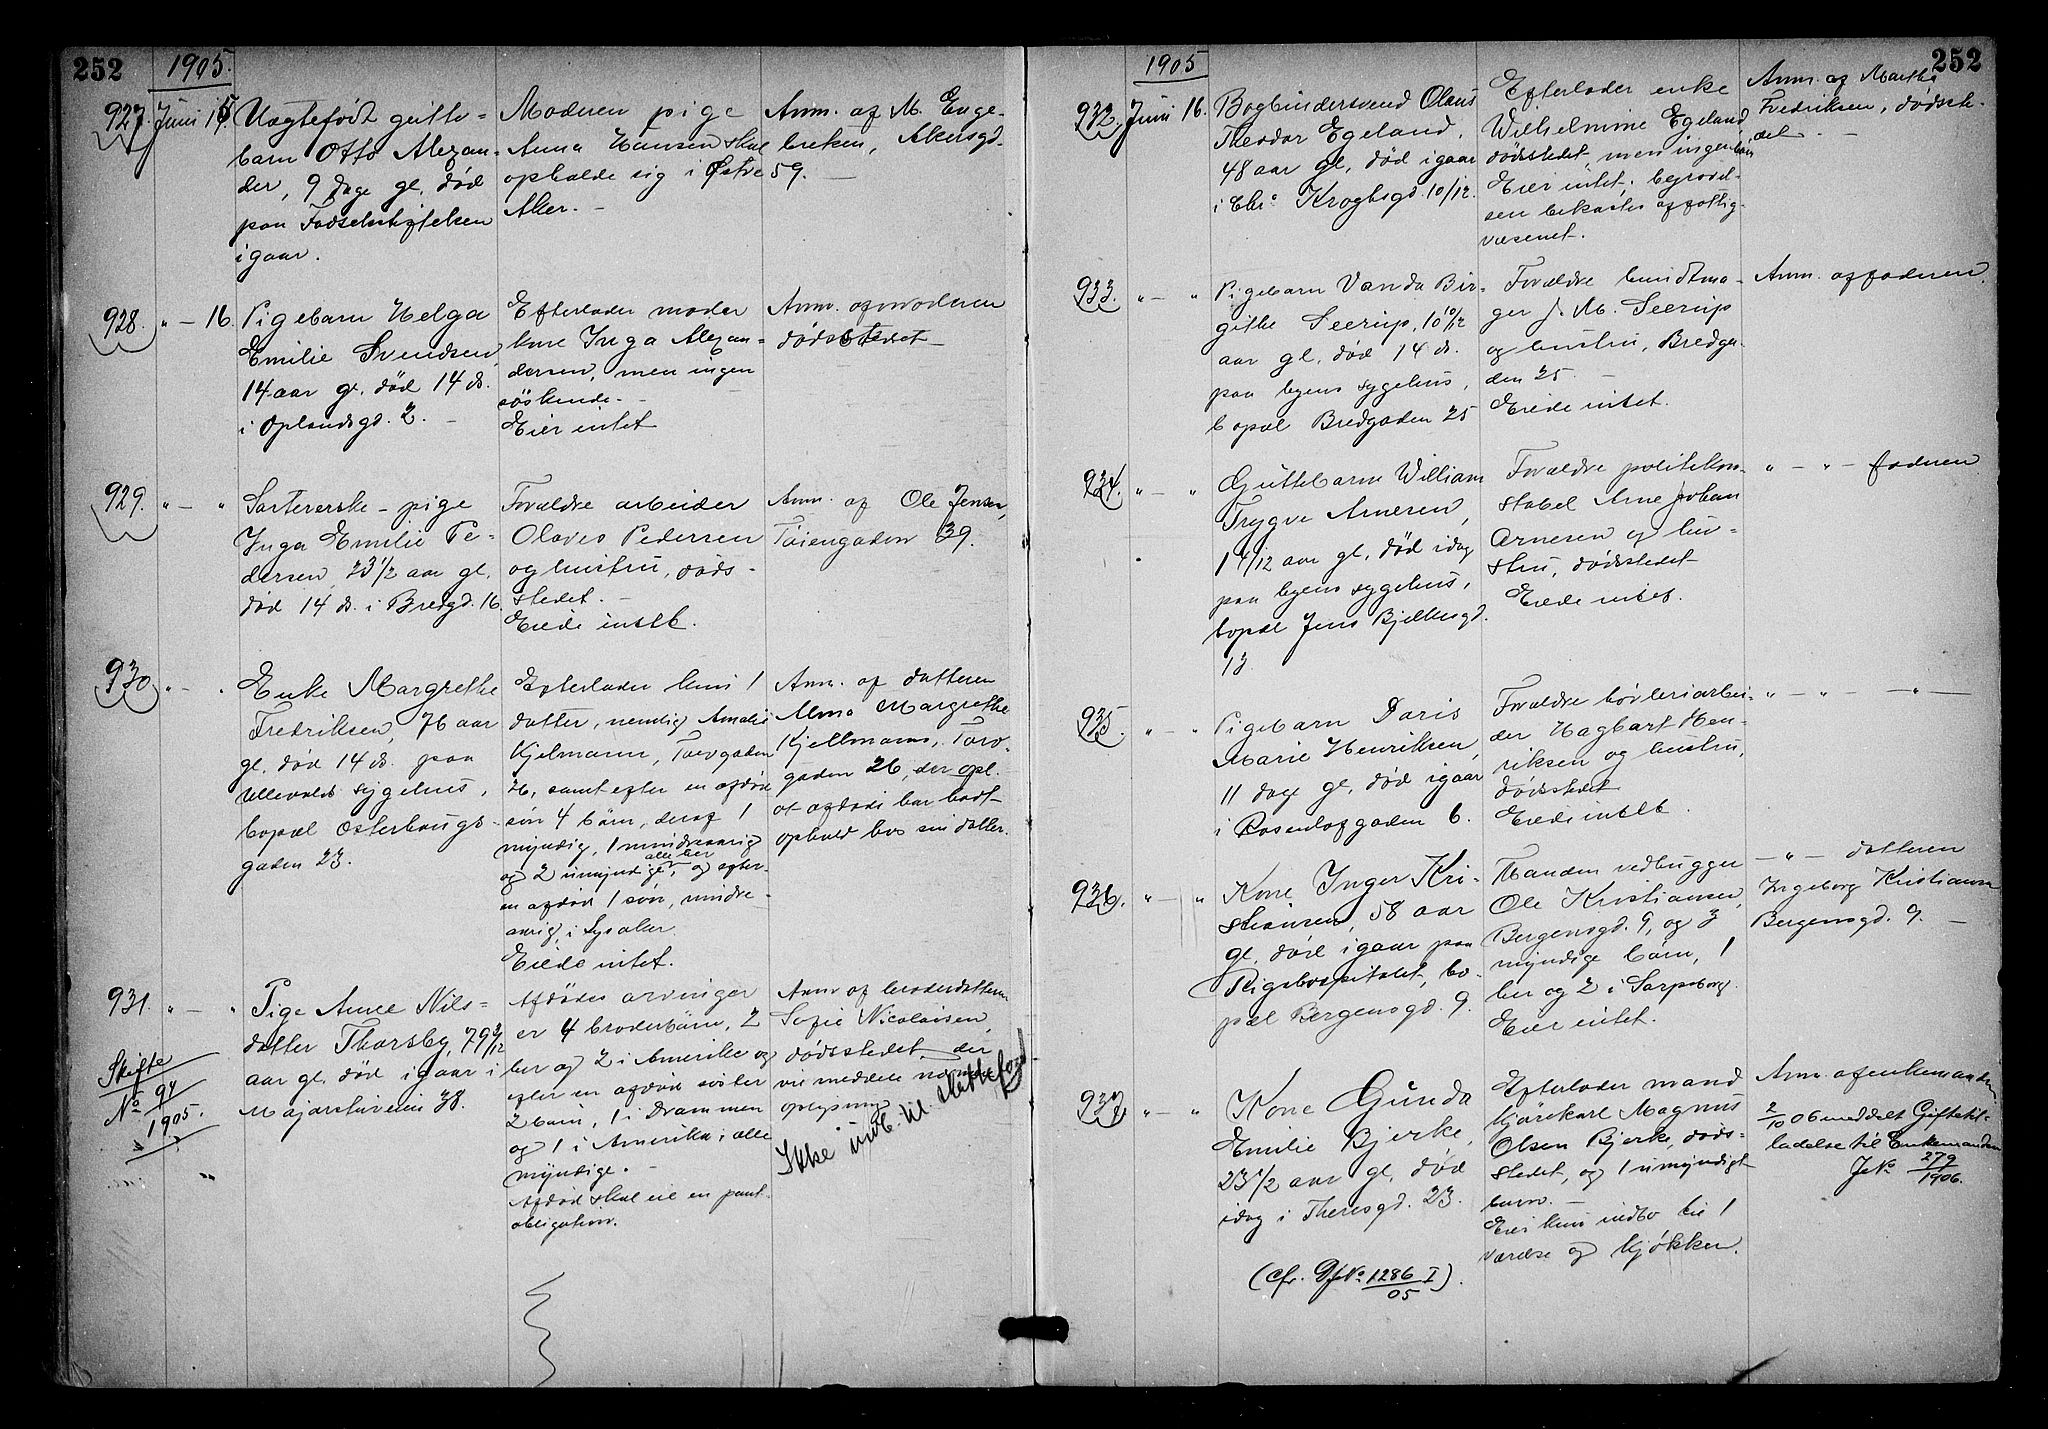 252
1905.
927. Juni 15.
Uægtefødt gutte-
barn Otto Alexan-
der, 9 dage gl. død
paa Fødselsstiftelsen
igaar.
Moderen pige
Anna Hansen skal
opholde sig i Østre
Aker. -
Anm. af M. Enge-
bretsen, Akersgd.
59. -
928. " - 16.
Pigebarn Helga
Emilie Svendsen,
14 aar gl. død 14 ds.
i Oplandsgd. 2. -
Efterlader moder
kone Inga Alexan-
dersen, men ingen
söskende. -
Eier intet
Anm. af moderen
dødsstedet -
929. " - "
Sortererske - pige
Inga Emilie Pe-
dersen, 23 1/2 aar gl.
død 14 ds. i Bredgd. 16.
Forældre arbeider
Olaves Pedersen
og hustru, døds-
stedet. -
Eiede intet.
Anm. af Ole Jensen,
Töiengaden 39.
930. " - "
Enke Margrethe
Fredriksen, 76 aar
gl. død 14 ds. paa
Ullevolds sygehus,
bopæl Osterhaugs-
gaden 23.
Efterlader kun 1
datter, nemlig Amalie
Kjelmann, Torvgaden
26, samt efter en afdød
sön 4 börn, deraf 1
myndig, 1 mindreaarig
og 2 umyndige, alle her
og efter
en afdød 1 sön, mindre-
aarig, i Lysaker.
Eiede intet.
Anm. af datteren
Alma Margrethe
Kjellmann, Torv-
gaden 26, der opl.
at afdøde har havt
ophold hos sin datter.
931. " - "
Skifte
No 94
1905.
Pige Anne Nils-
datter Thorsby, 79 3/12
aar gl. død igaar i
Majorstuveien 38.
Afdödes arvinger
er 4 broderbörn, 2
her og 2 i Amerika og
efter en afdød söster
2 barn, 1 i Drammen
og 1 i Amerika; alle
myndige. -
Afdød skal eie en pant-
obligation.
Anm. af broderdatteren
Sofie Nicolaisen,
dødsstedet, der
vil meddele nærmere
oplysning
Ikke indb. til sluttet bod
252
1905
932. Juni 16.
Bogbindersvend Olaus
Theodor Egeland,
48 aar gl, død igaar
i Chr. Kroghsgd. 10/12.
Efterlader enke
Wilhelmine Egeland
dødsstedet, men ingen börn
Eier intet; begravel-
sen bekostes af fattig-
væsenet.
Anm. af Martha
Fredriksen, dødsste-
det -
933. " - "
Pigebarn Vanda Bir-
githe Seerup, 10 10/12
aar gl. død 14 ds.
paa byens sygehus,
bopæl Bredgaden 25
Forældre bundtma-
ger J. M. Seerup
og hustru, Bredga-
den 25 -
Eiede intet.
Anm. af faderen
934. " - "
Guttebarn William
Trygve Arnesen,
1 4/12 aar gl. død idag
paa byens sygehus,
bopæl Jens Bjelkesgd.
13.
Forældre politikon-
stabel Arne Johan
Arnesen og hu-
stru, dødsstedet
Eiede intet.
" - " - faderen
935. " - "
Pigebarn Doris
Marie Henriksen,
11 dage gl. død igaar
i Rosenhofgaden 6.
Forældre hövleriarbei-
der Hagbart Hen-
riksen og hustru,
dødsstedet
Eiede intet.
" - " - " -
936. " - "
Kone Inger Kri-
stiansen, 58 aar
gl. død igaar paa
Rigshospitalet, bo-
pæl Bergensgd. 9.
Manden vedhugger
Ole Kristiansen,
Bergensgd. 9, og 3
myndige börn, 1
her og 2 i Sarpsborg.
Eier intet.
- " - datteren
Ingeborg Kristiansen
Bergensgd. 9. -
937. " - "
Kone Gunda
Emilie Bjerke,
23 1/2 aar gl, død
idag i Theresgd. 23.
(cfr. Gf No 1286 I).
05
Efterlader mand
kjörekarl Magnus
Olsen Bjerke, döds-
stedet, og 1 umyndigt
barn. -
Eier kun indbo til 1
værelse og kjökken.
Anm. af enkemanden
2/10 06 meddelt Giftetil-
ladelse til Enkemanden
J No 279
1906.